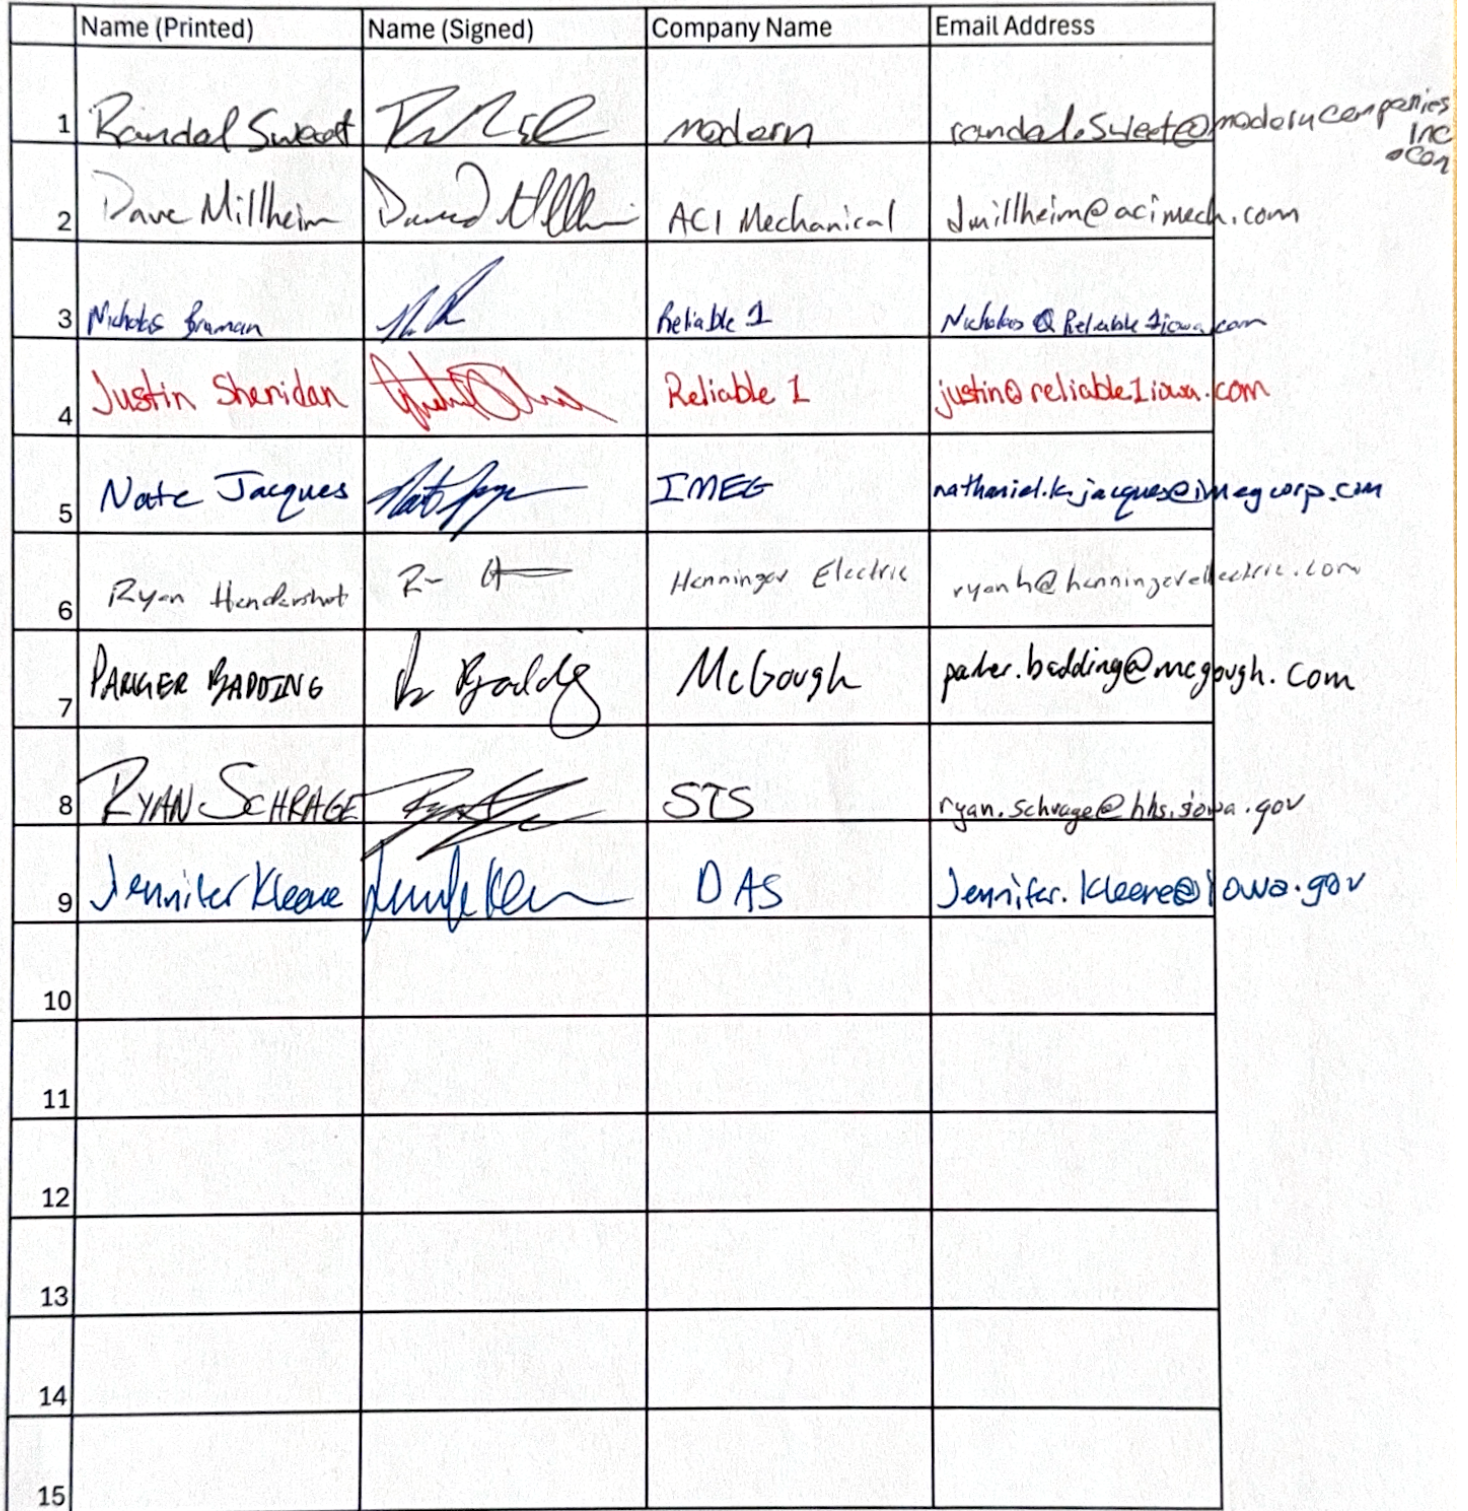 Name (Printed) Name (Signed) Company Name Email Address
1 Randal Sweet modern randal.sweet@moderncompanies
inc
.com
2 Dave Millheim ACI Mechanical dmillheim@acimech.com
3 Nicholas Braman Reliable 1 Nicholas@Reliable1iowa.com
4 Justin Sheridan Reliable 1 justin@reliable1iowa.com
5 Nate Jacques IMEG nathaniel.k.jacques@imegcorp.com
6 Ryan Hendershot Henninger Electric ryanh@henningerelectric.com
7 PARKER BADDING McGough parker.badding@mcgough.com
8 RYAN SCHRAGE STS ryan.schrage@hhs.iowa.gov
9 Jennifer Kleene DAS Jennifer.Kleene@iowa.gov
10
11
12
13
14
15